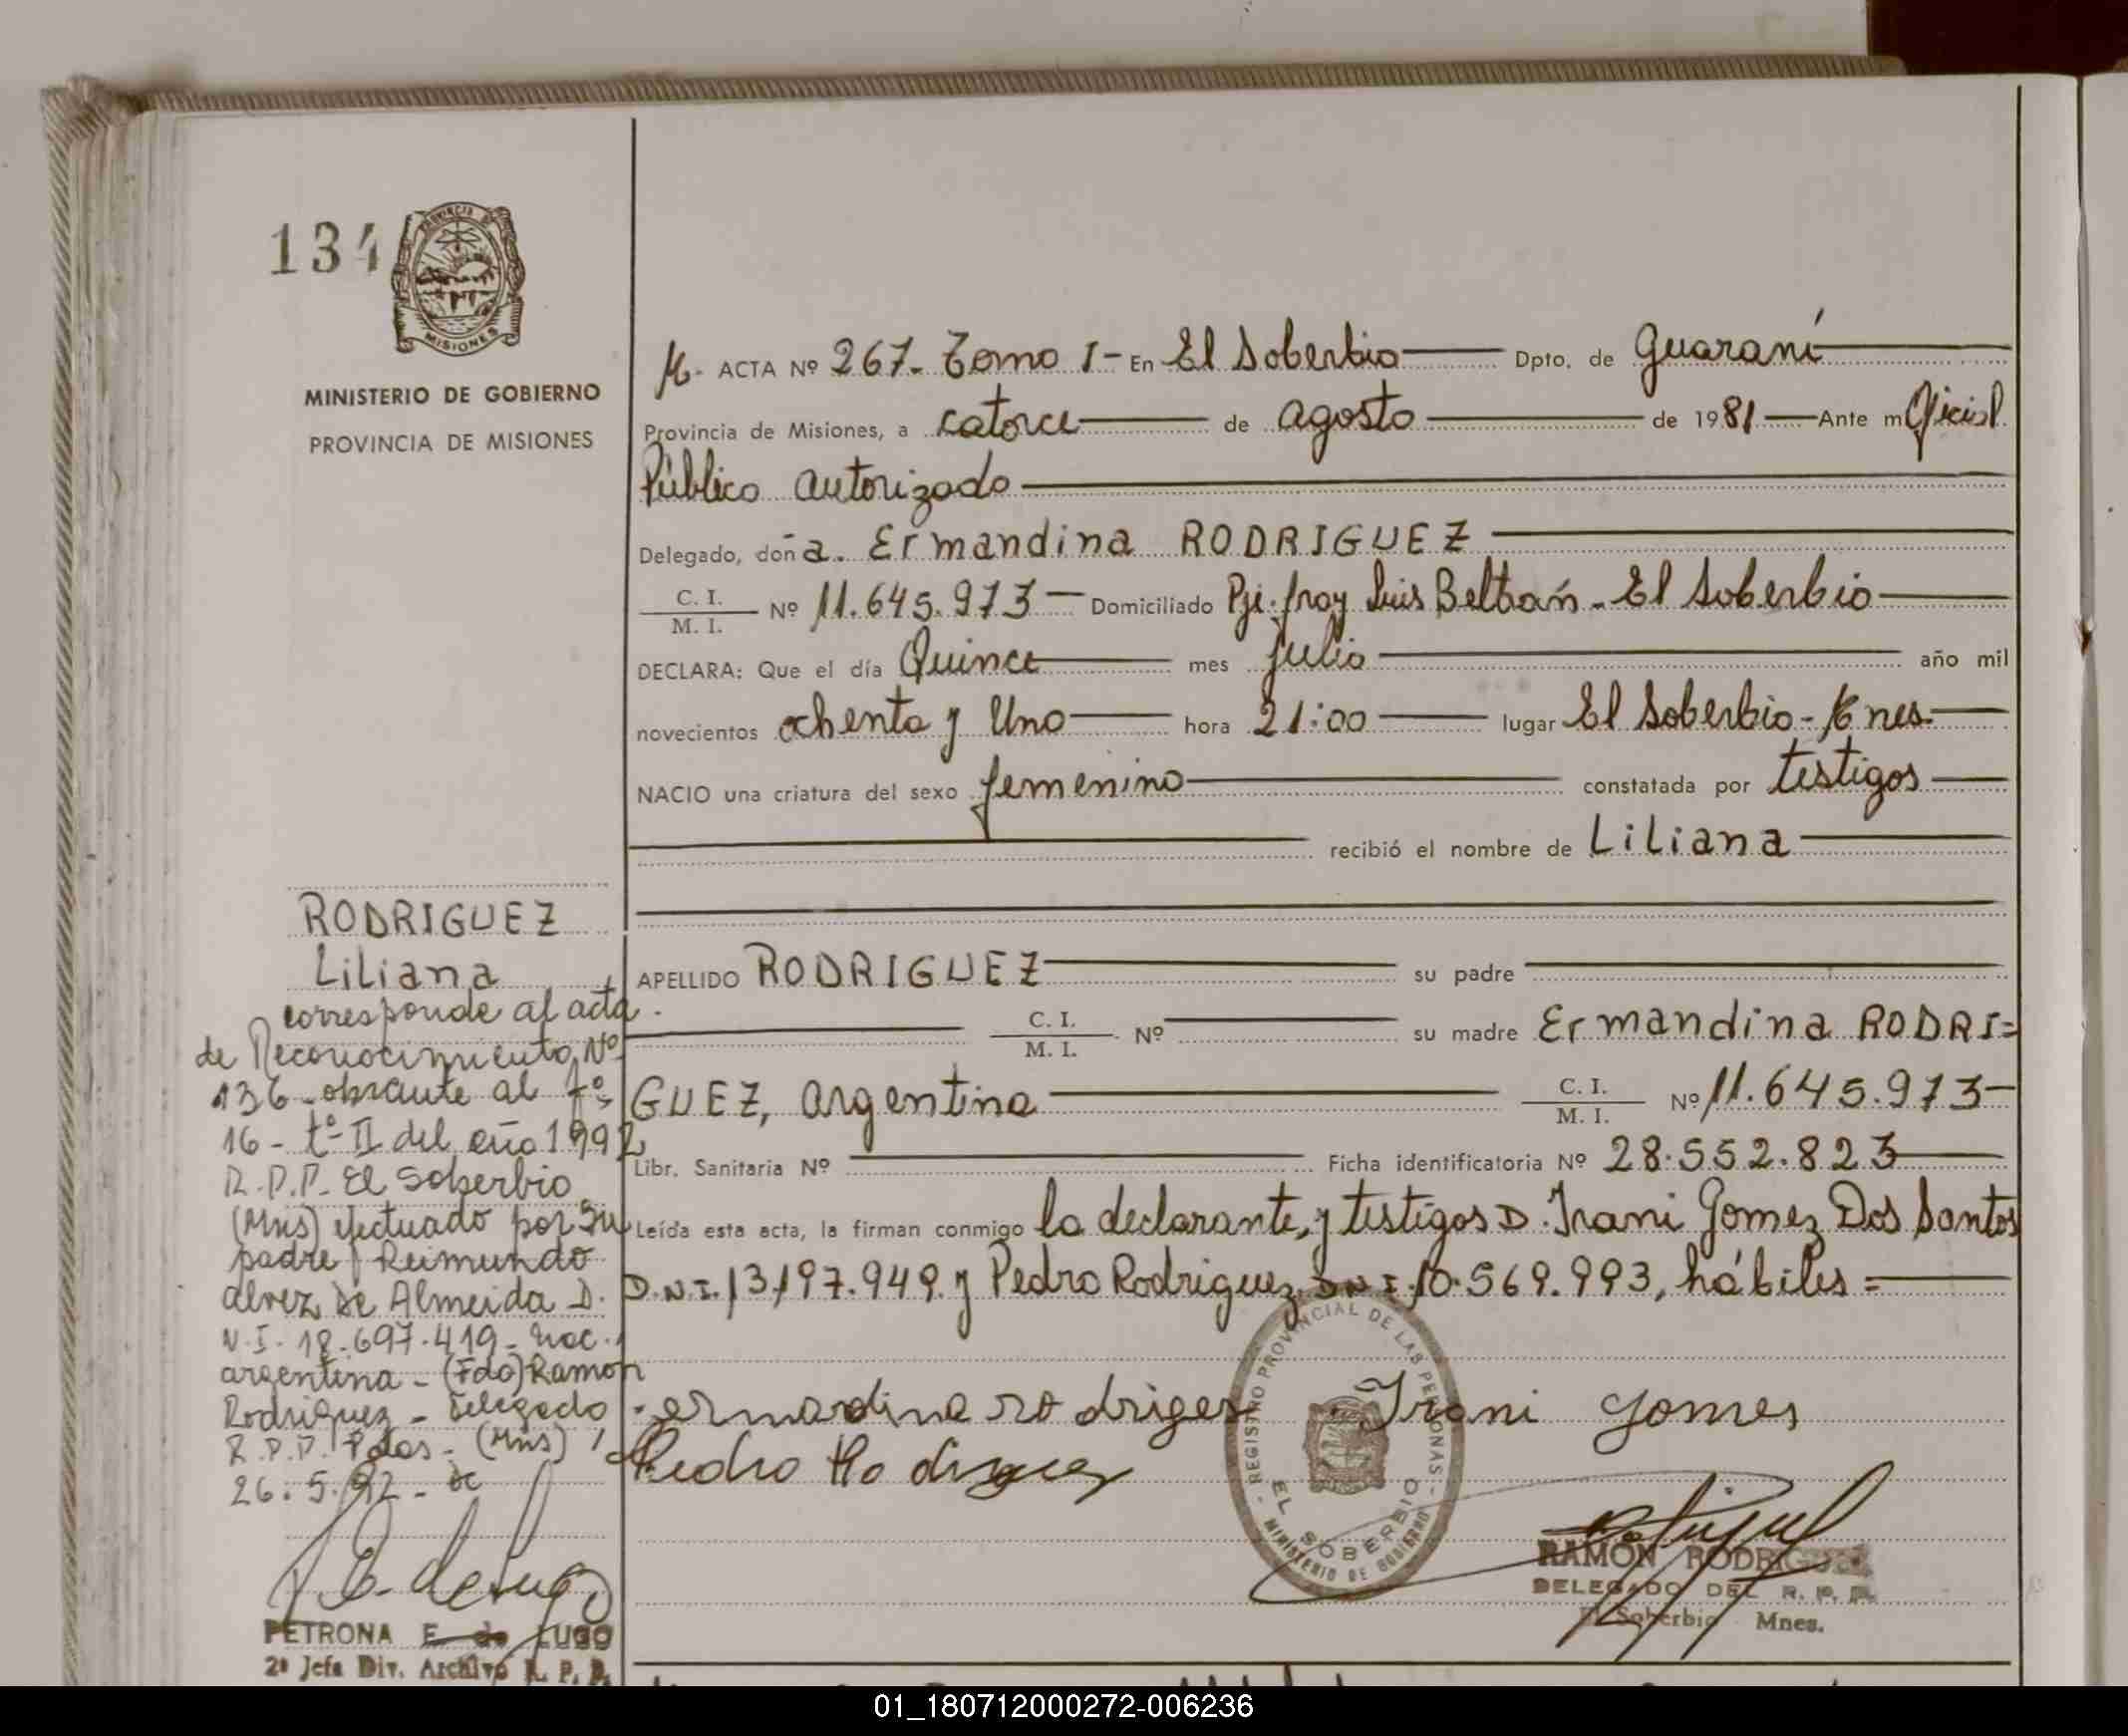 134
PROVINCIA DE
MISIONES
MINISTERIO DE GOBIERNO
PROVINCIA DE MISIONES
ACTA Nº 267- Tomo I- En El Soberbio Dpto. de Guaraní
Provincia de Misiones, a catorce de agosto de 1981 Ante m Oficial
Público autorizado
Delegado, doña. Ermandina RODRIGUEZ
C. I.
M. I. Nº 11.645.973 Domiciliado Pje. fray Luis Beltrán - El Soberbio
DECLARA: Que el día Quince mes julio año mil
novecientos ochenta y Uno hora 21:00 lugar El Soberbio - Mnes.
NACIO una criatura del sexo femenino constatada por testigos
recibió el nombre de Liliana
APELLIDO RODRIGUEZ su padre
C. I.
M. I. Nº su madre Ermandina RODRI=
GUEZ, argentina C. I.
M. I. Nº 11.645.973
Libr. Sanitaria Nº Ficha identificatoria Nº 28.552.823
Leída esta acta, la firman conmigo la declarante, y testigos D. Irani Gomez Dos Santos
D.N.I. 13.197.949. y Pedro Rodriguez D.N.I. 10.569.993, hábiles =
ermandina rodriges Irani gomes
Pedro Rodriguez
REGISTRO PROVINCIAL DE LAS PERSONAS
EL SOBERBIO
MINISTERIO DE GOBIERNO
RAMON RODRIGUEZ
DELEGADO DEL R. P. P.
El Soberbio Mnes.
RODRIGUEZ
Liliana
corresponde al acta
de Reconocimiento Nº
136 - obrante al fº
16 - tº II del año 1992
R.P.P. El Soberbio
(Mns) efectuado por su
padre Reimundo
alvez de Almeida D.
N.I. 18.697.419 - nac.
argentina - (Fdo) Ramon
Rodriguez - Delegado
R.P.P. Pdas - (Mns)
26.5.92 -
PETRONA E. de LUGO
2ª Jefa Div. Archivo R. P. P.
01_180712000272-006236